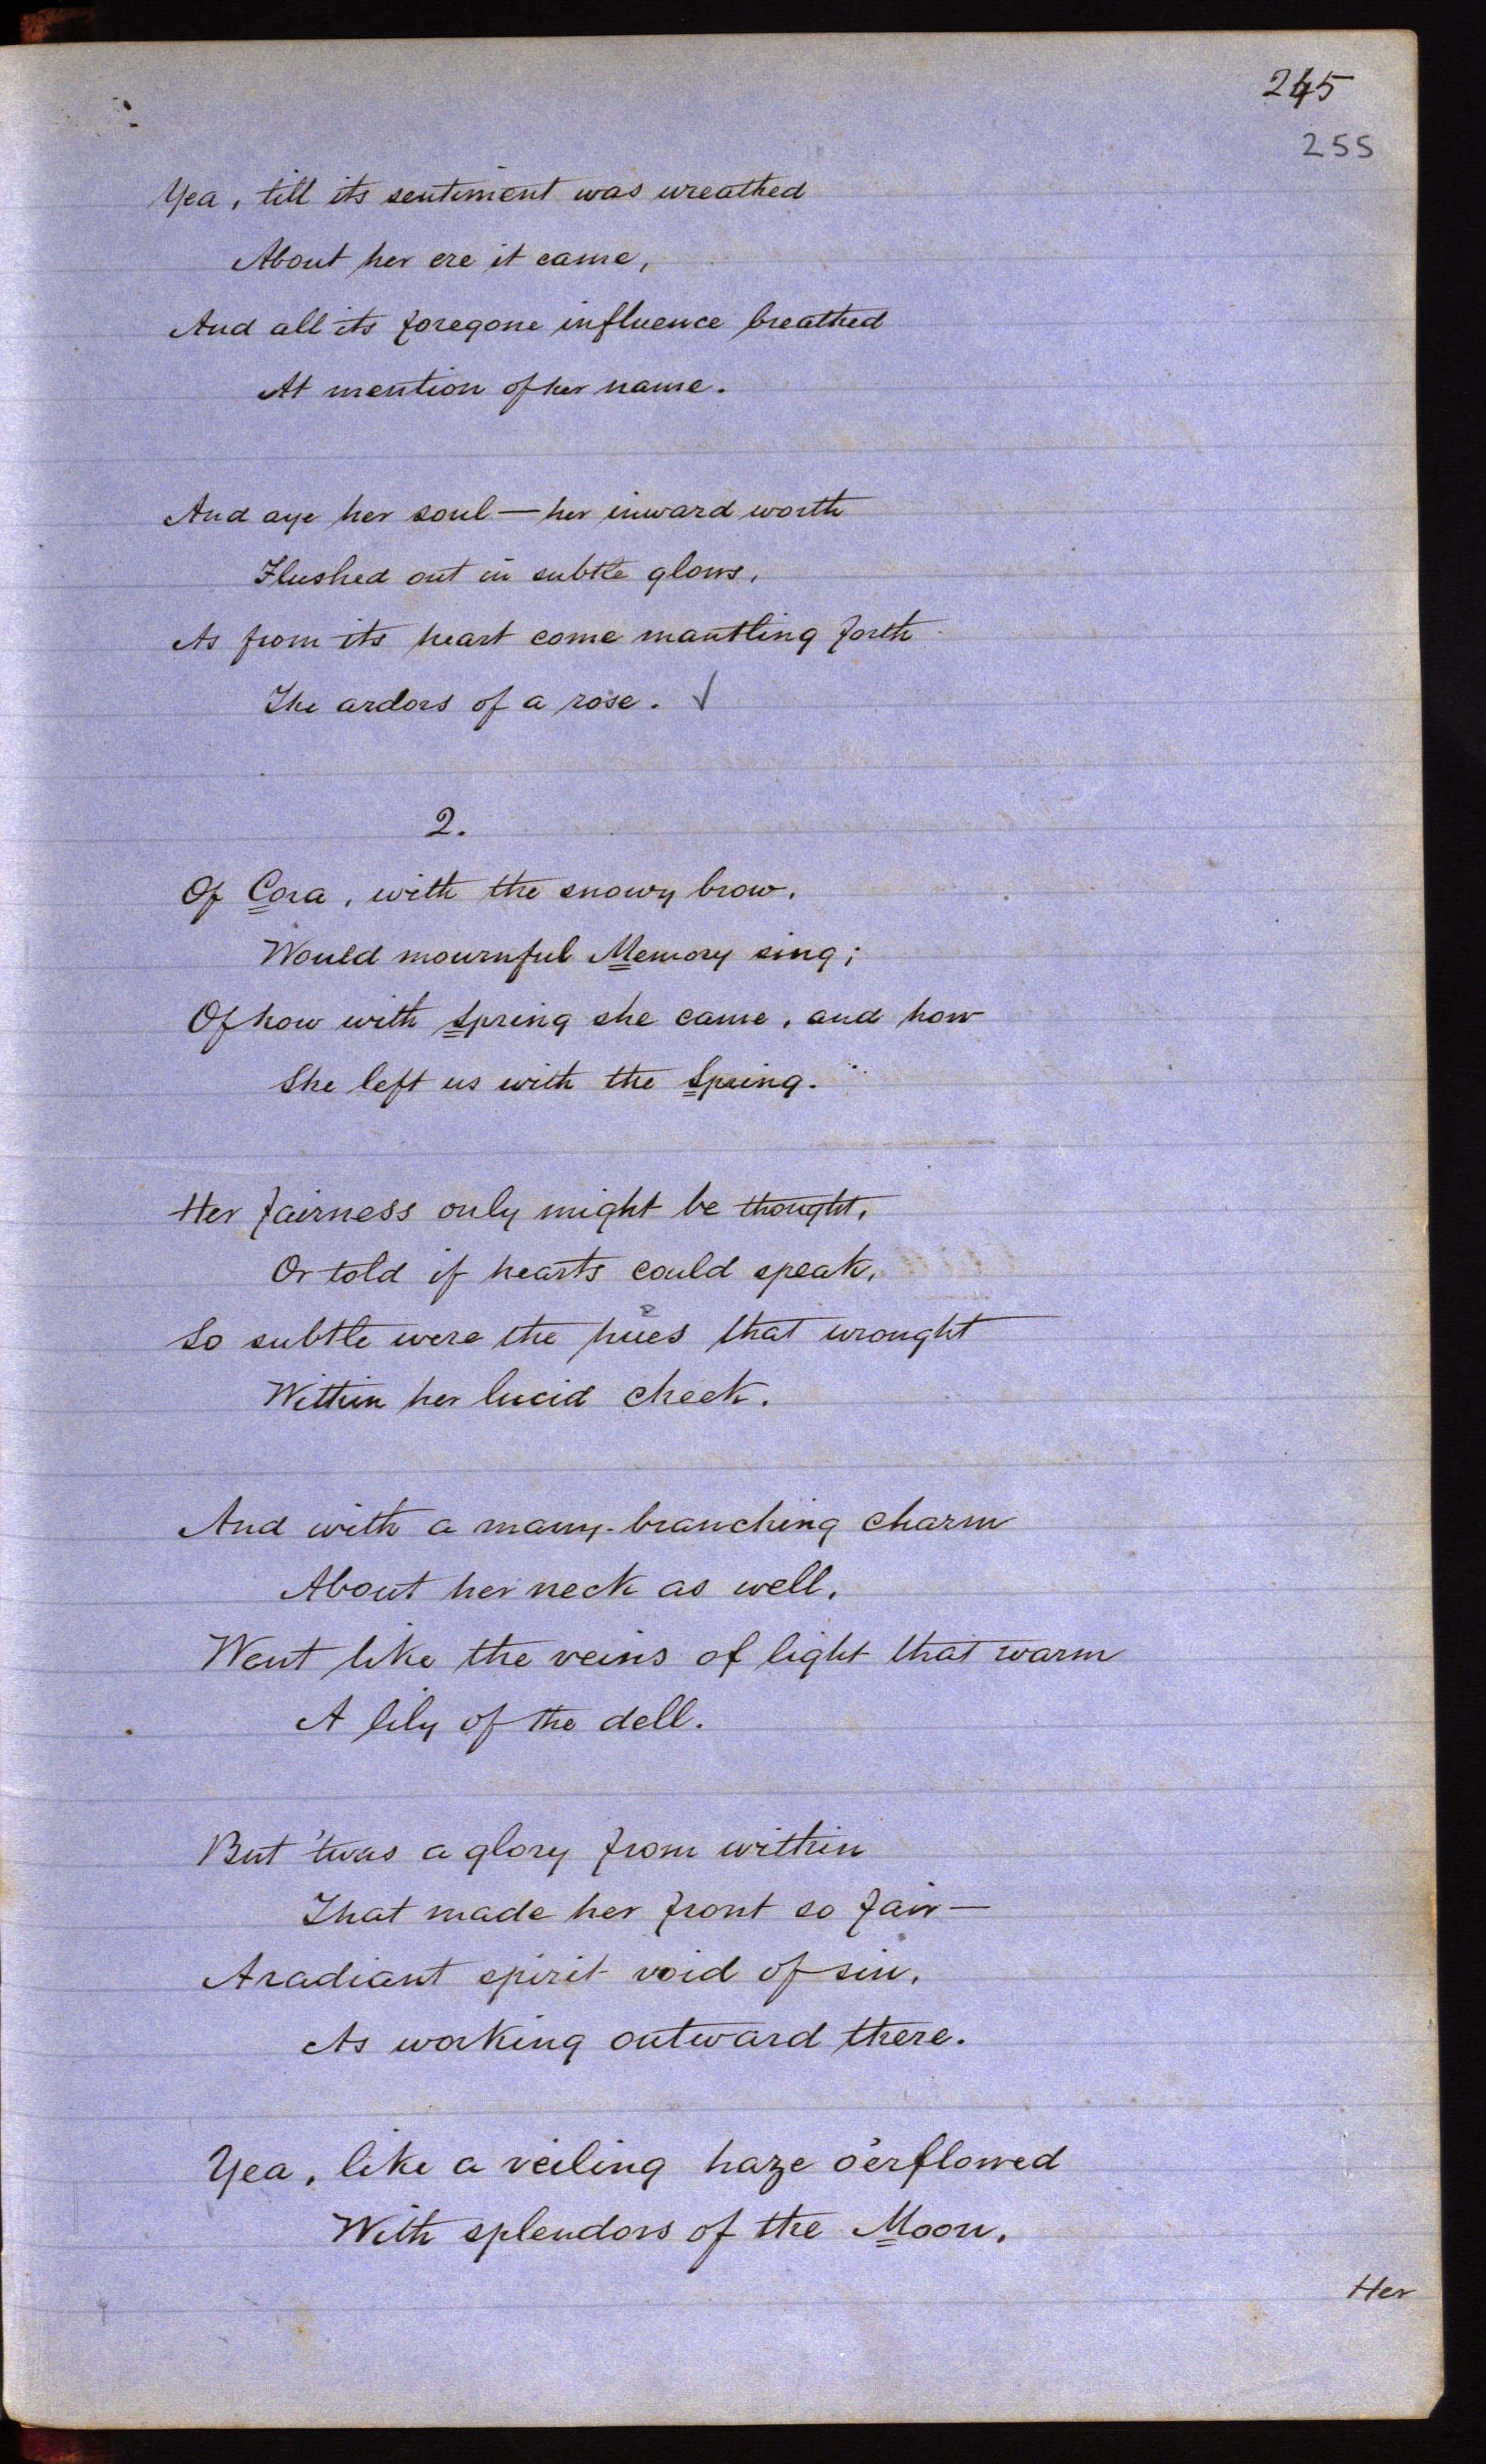 245
255
Yea, till its sentiment was wreathed
About her ere it came,
And all its foregone influence breathed
At mention of her name.
And aye her soul — her inward worth
Flushed out in subtle glows,
As from its heart come mantling forth
The ardors of a rose. ✓
2.
Of Cora, with the snowy brow,
Would mournful Memory sing;
Of how with Spring she came, and how
She left us with the Spring.
Her fairness only might be thought,
Or told if hearts could speak,
So subtle were the hues that wrought
Within her lucid cheek.
And with a many-branching charm
About her neck as well,
Went like the veins of light that warm
A lily of the dell.
But 'twas a glory from within
That made her front so fair —
A radiant spirit void of sin,
As working outward there.
Yea, like a veiling haze o'erflowed
With splendors of the Moon,
Her